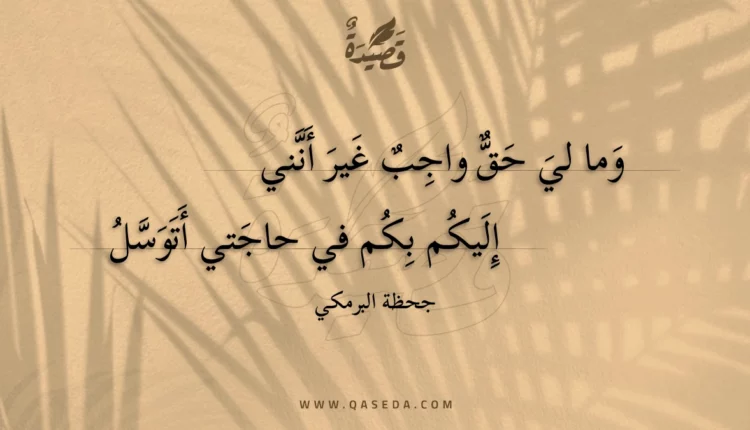 قَصِيْدَةٌ
وَما لِيَ حَقٌّ واجِبٌ غَيرَ أَنَّني
إِلَيكُم بِكُم في حاجَتي أَتَوَسَّلُ
جحظة البرمكي
WWW.QASEDA.COM